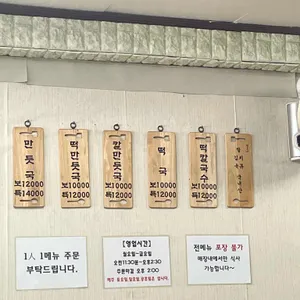 만둣국
보 12000
특 14000
떡만둣국
보 10000
특 12000
칼만둣국
보 10000
특 12000
떡국
보 10000
특 12000
떡칼국수
보 10000
특 12000
1人 1메뉴 주문
부탁드립니다.
[영업시간]
월요일~금요일
오전11:30분~오후2:30
주문마감 오후 2:00
매주 토요일,일요일,공휴일은 쉽니다.
전메뉴 포장 불가
매장내에서만 식사
가능합니다~